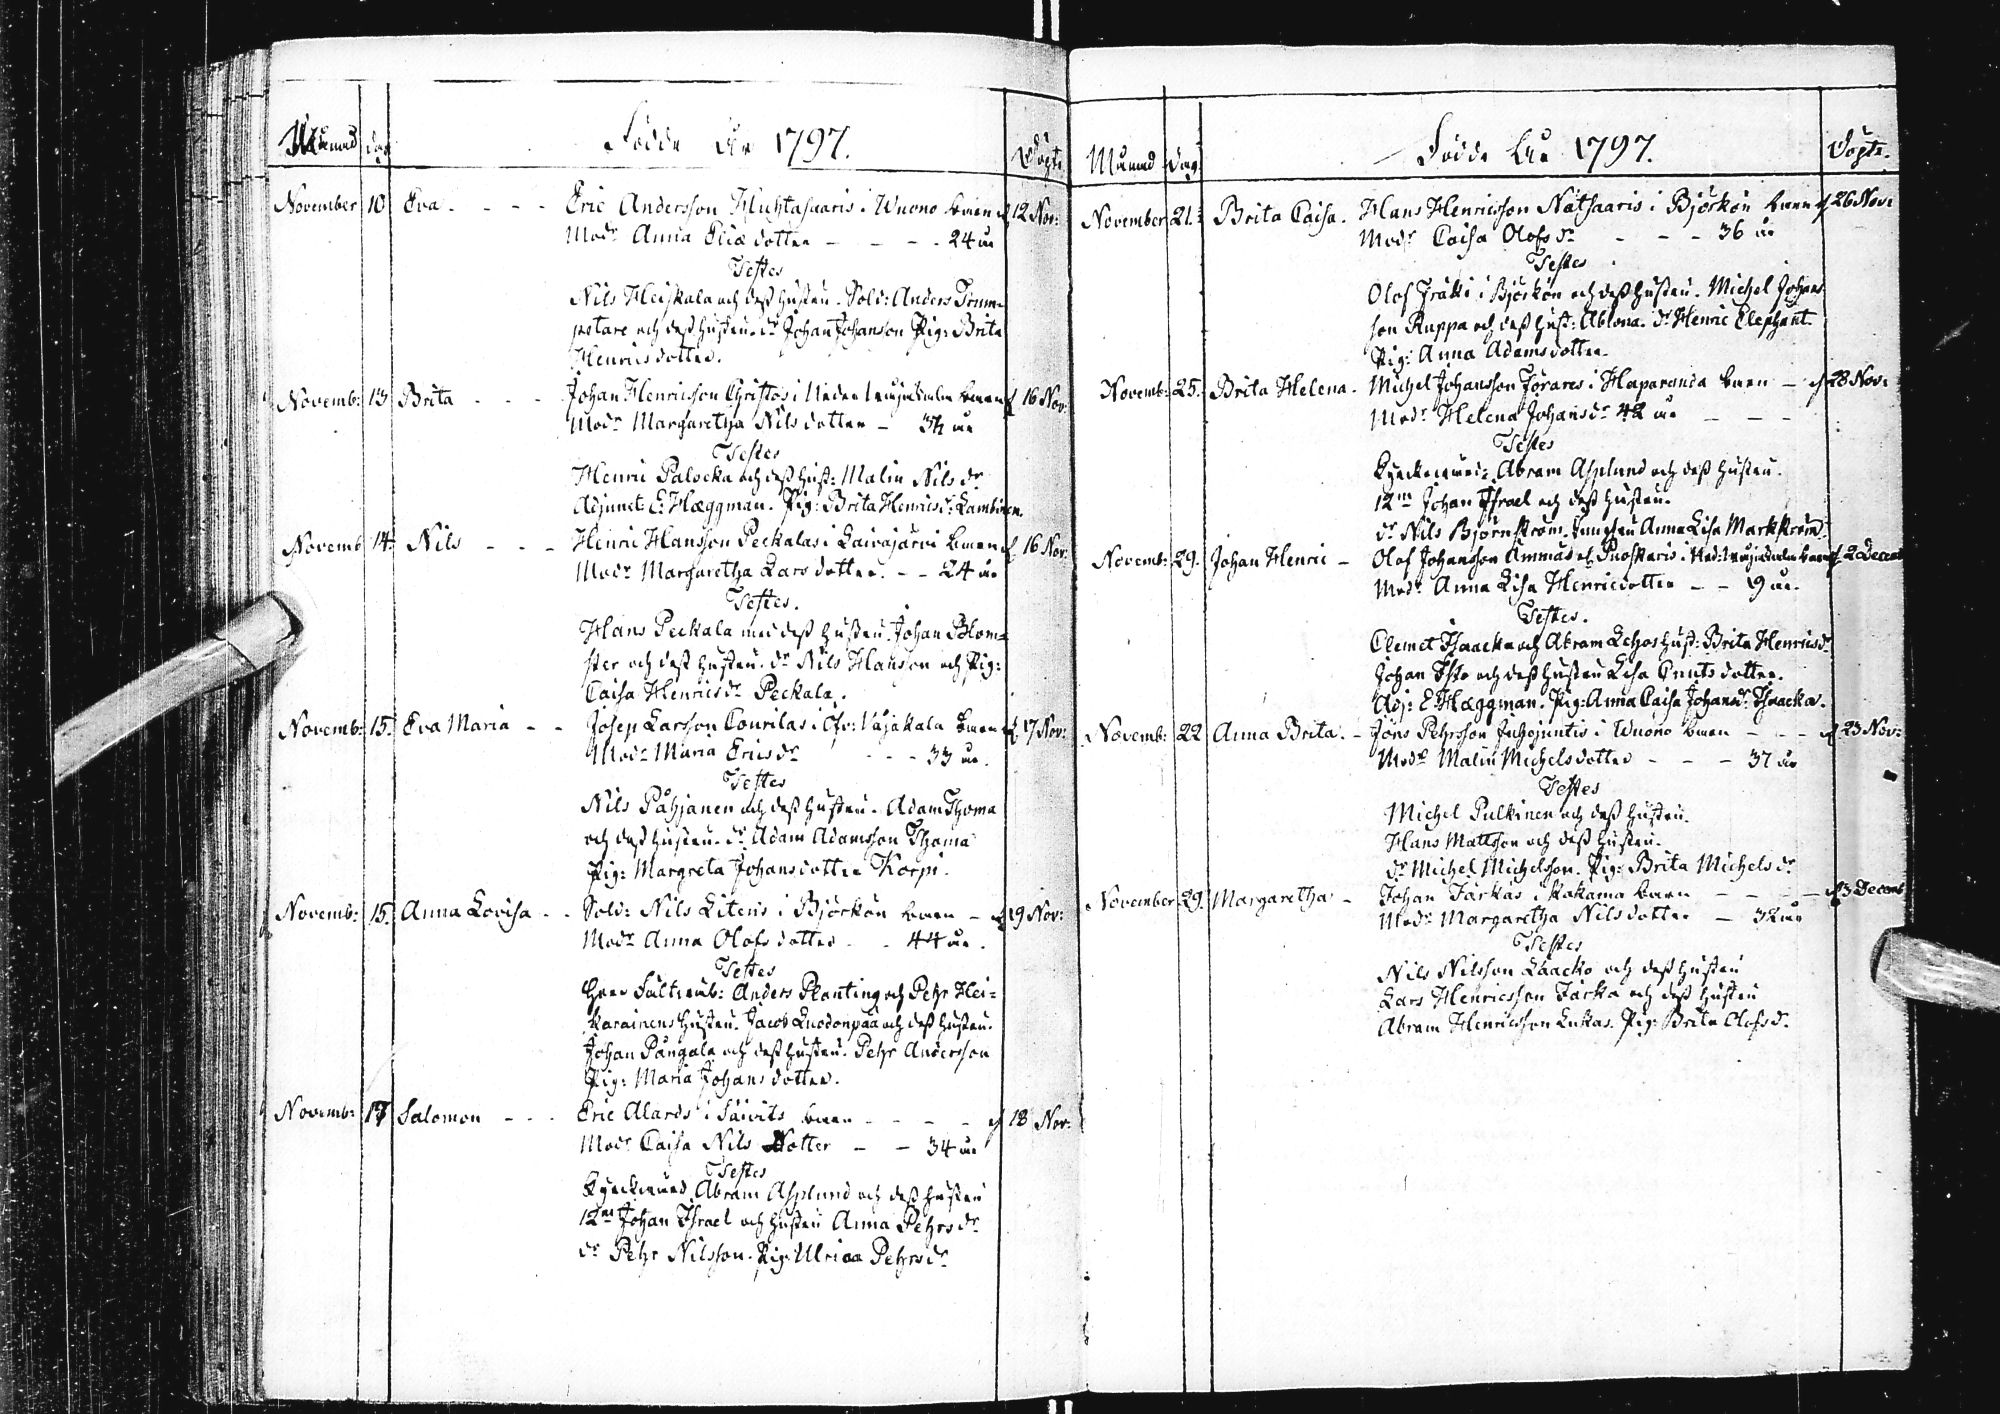 Månad dag Födde År 1797. Döpte
November 10 Eva. - - - Eric Andersson Kuhtasaaris i Wuono barn d. 12 Nov:
Modr Anna Erics dotter - - - 24 år
Testes
Nils Heiskala och dess hustru. Sold: Anders Trum=
petare och dess hustru. dr Johan Johanson Pig: Brita
Henrics dotter.
Novemb: 13 Brita - - - Johan Henricsson Christos i Neder barn d 16 Nov:
Modr Margaretha Nils dotter - 34 år
Testes
Henric Palocka och dess hust: Malin Nils dr
Adjunct E: Hæggman. Pig: Brita Henricsdr Lambinen.
Novemb 14. Nils - - - Henric Hansson Peckalas i Kaivajärvi barn d. 16 Nov:
Modr Margaretha Lars dotter. - - 24 år
Testes.
Hans Peckala med dess hustru. Johan Blom=
ster och dess hustru. dr Nils Hanson och Pig:
Caisa Henricsdr Peckala.
Novemb: 15. Eva Maria - - Josep Larsson Courilas i Öfv: Våjakala barn d. 17 Nov:
Modr Maria Ericsdr - - - 33 år.
Testes
Nils Påhjanen och dess hustru. Adam Thoma
och dess hustru. dr Adam Adamsson Thoma
Pig: Margreta Johansdotter Korpi.
Novemb: 15. Anna Lovisa - - Sold: Nils Litens i Björkön barn - d 19 Nov:
Modr Anna Olofs dotter - - 44 år.
Testes
Herr Fältväb: Anders Planting och Petr Hei=
karainens hustru. Jacob Luodonpää och dess hustru.
Johan Pångala och dess hustru. Petr Andersson
Pig: Maria Johans dotter.
Novemb: 17 Salomon - - - Eric Alards i Säivits barn - - - - d 18 Nov:
Modr Caisa Nils dotter - - 34 år
Testes
Kyrckovärd Abram Asplund och dess hustru
12m Johan Israel och hustru Anna Pehrsdr
dr Pehr Nilsson. Pig: Ulrica Pehrsdr
Månad Dag Födde År 1797. Döpte.
November 21. Brita Caisa. Hans Henricsson Nätsaaris i Björkön barn d 26 Nov:
Modr Caisa Olofs dr - - - 36 år
Testes
Olof Träkki i Björkön och dess hustru. Michel Johans
son Ruppa och dess hust: Ablona. dr Henric Elephant.
Pig: Anna Adamsdotter.
Novemb: 25. Brita Helena. Michel Johansson Förares i Haparanda barn - d 28 Nov:
Modr Helena Johansdr 42 år - - -
Testes
Kyrckovärd: Abram Asplund och dess hustru.
12m Johan Israel och dess hustru.
dr Nils Björnström. Jungfru Anna Lisa Markström.
Novemb: 29. Johan Henric - Olof Johansson Ammäs el. Puoskaris i Ned: barn d 2 Decemb
Modr Anna Lisa Henricsdotter - - 9 år.
Testes.
Clemet Isaacka och Abram Lehos hust: Brita Henricsdr
Johan Isko och dess hustru Lisa Cnuts dotter.
Adj: E Hæggman. Pig: Anna Caisa Johansdr Isaacka.
Novemb: 22 Anna Brita. - Jöns Pehrsson Juhojuntis i Wuono barn - - - d 23 Nov:
Modr Malin Michelsdotter - - - 37 år
Testes
Michel Pulkinen och dess hustru.
Hans Mattsson och dess hustru.
dr Michel Michelsson. Pig: Brita Michels dr
November 29. Margaretha - Johan Färkäs i Kakama barn - - - - d 3 Decemb
Modr Margaretha Nils dotter - 32 år
Testes
Nils Nilsson Laacko och dess hustru
Lars Henricsson Färka och dess hustru
Abram Henricsson Lukas. Pig: Brita Olofsdr.